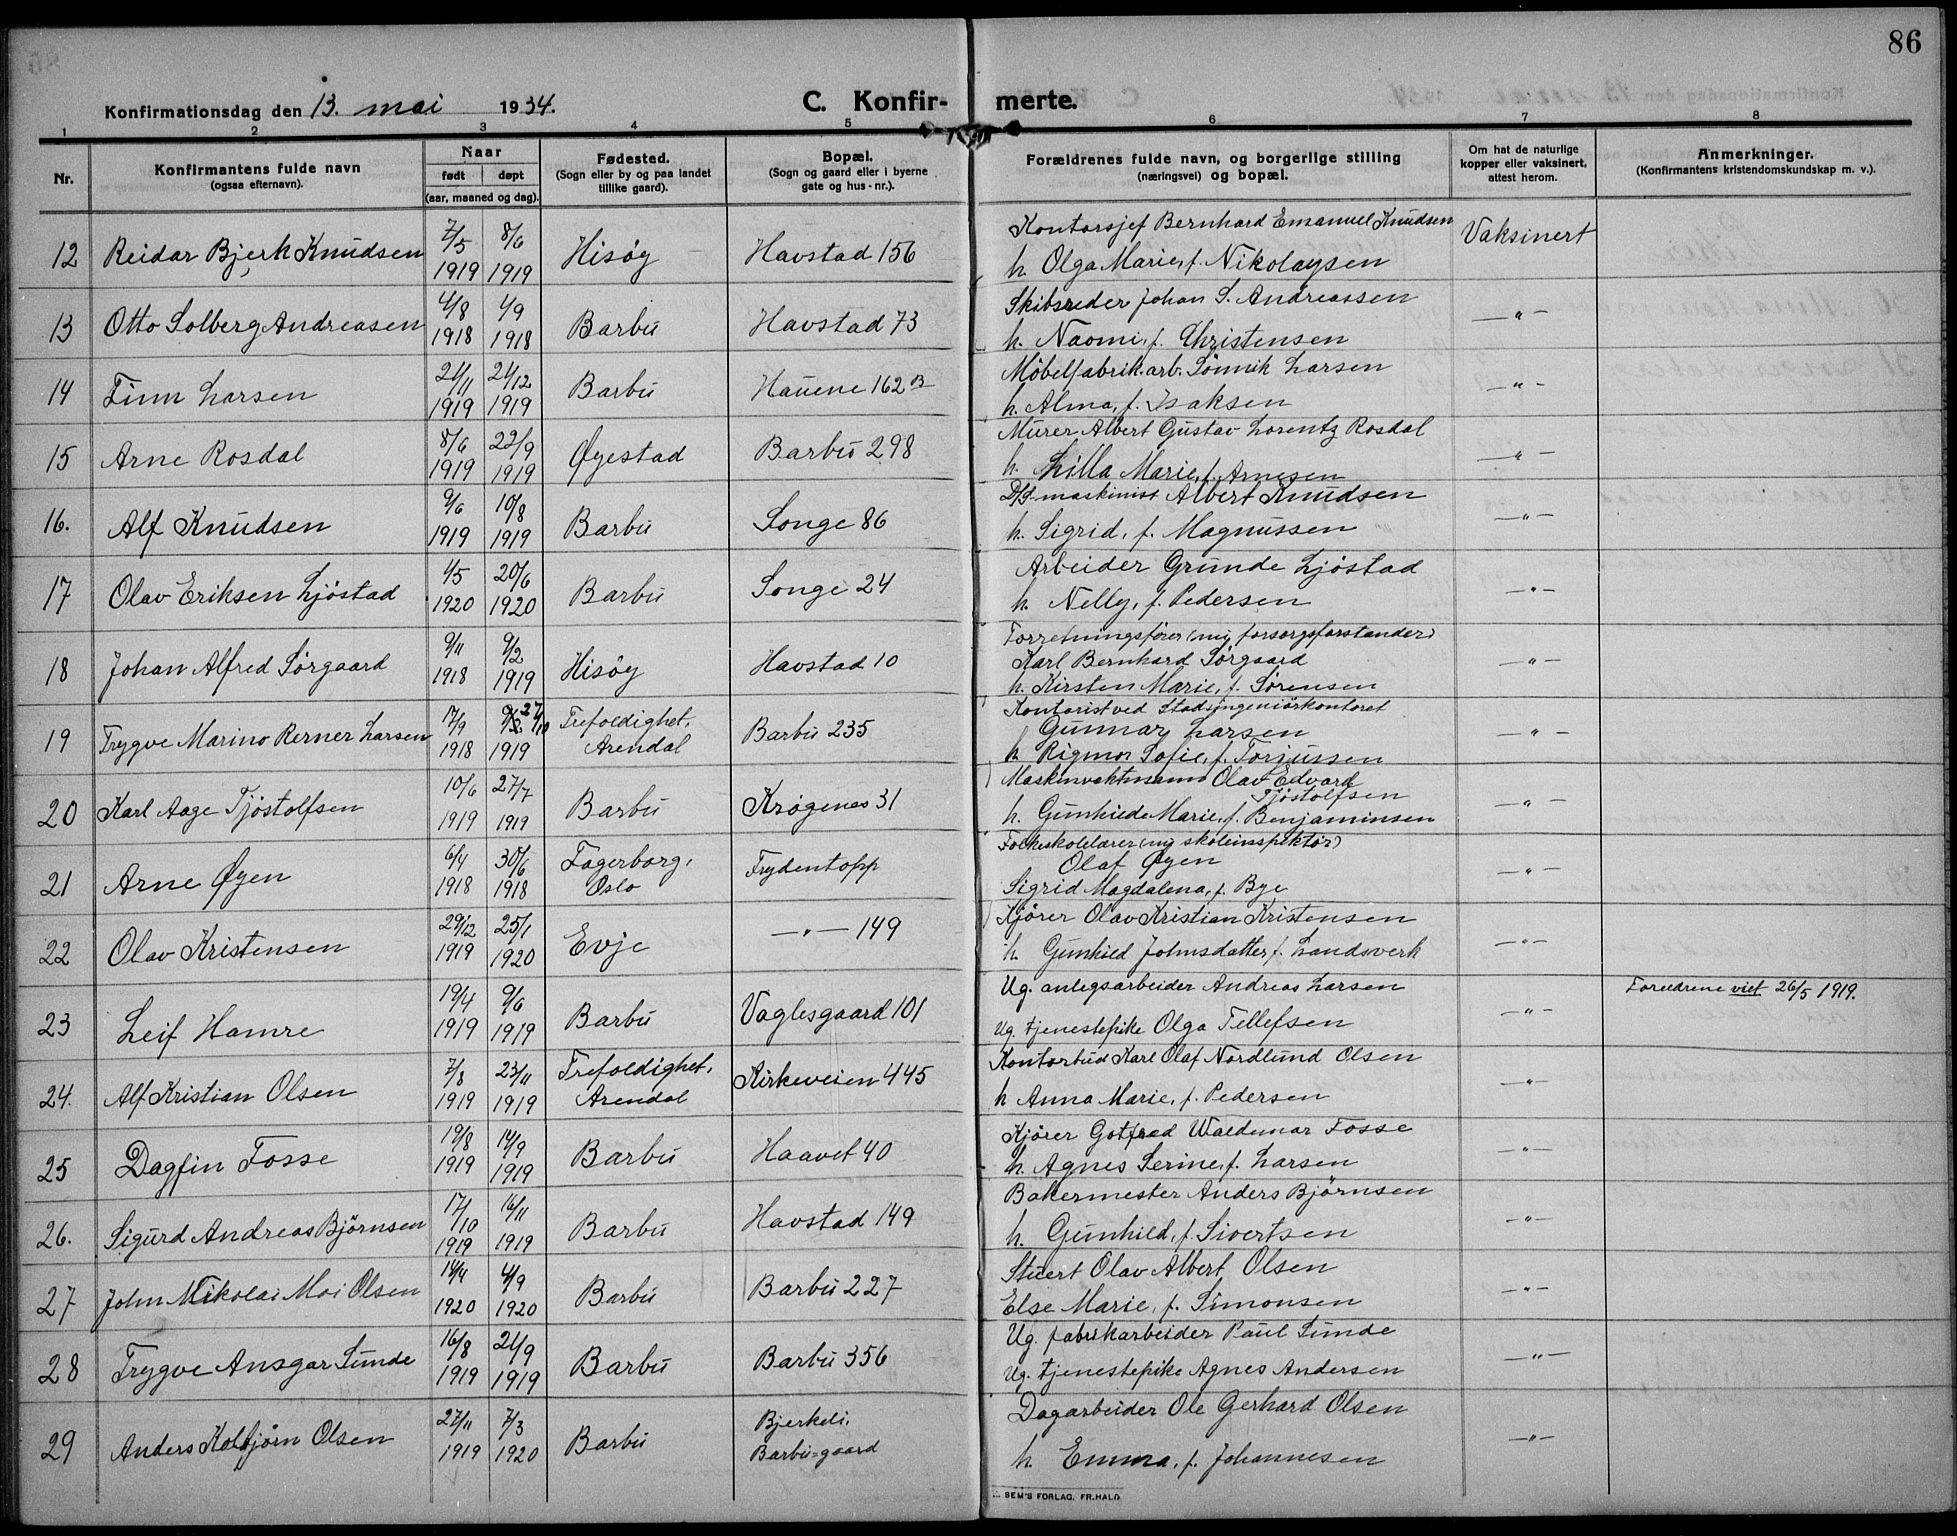 86
Konfirmationsdag den 13. mai 1934.
C. Konfir- merte.
1 2 3 4 5 6 7 8
Nr.
Konfirmantens fulde navn
(ogsaa efternavn).
Naar
født døpt
(aar, maaned og dag).
Fødested.
(Sogn eller by og paa landet
tillike gaard).
Bopæl.
(Sogn og gaard eller i byerne
gate og hus-nr.).
Forældrenes fulde navn, og borgerlige stilling
(næringsvei) og bopæl.
Om hat de naturlige
kopper eller vaksinert,
attest herom.
Anmerkninger.
(Konfirmantens kristendomskundskap m. v.).
12 Reidar Bjerk Knudsen 7/5 1919 8/6 1919 Hisøy Havstad 156
Kontorsjef Bernhard Emanuel Knudsen
h. Olga Marie, f. Nikolaysen
Vaksinert
13 Otto Solberg Andreasen 4/8 1918 1/9 1918 Barbu Havstad 73
Skibsreder Johan S. Andreassen
h. Naomi, f. Christensen
—"—
14 Finn Larsen 21/11 1919 21/12 1919 Barbu Hauene 162 B
Möbelfabrik.arb. Sönnik Larsen
h. Alma, f. Isaksen
—"—
15 Arne Rosdal 8/6 1919 22/9 1919 Øyestad Barbu 298
Murer Albert Gustav Lorentz Rosdal
h. Lilla Marie, f. Arnesen
—"—
16. Alf Knudsen 9/6 1919 10/8 1919 Barbu Songe 86
D/S-maskinist Albert Knudsen
h. Sigrid, f. Magnussen
—"—
17 Olav Eriksen Ljöstad 1/5 1920 20/6 1920 Barbu Songe 24
Arbeider Grunde Ljöstad
h. Nelly, f. Pedersen
—"—
18 Johan Alfred Sørgaard 9/11 1918 9/2 1919 Hisøy Havstad 10
Forretningsfører (nu forsorgsforstander)
Karl Bernhard Sørgaard
h. Kirsten Marie, f. Sørensen
—"—
19 Trygve Marino Rerner Larsen 17/9 1918 27/10 1919 Trefoldighet, Arendal Barbu 235
Kontorist ved Stadsingeniörkontoret
Gunnar Larsen
h. Rigmor Sofie, f. Torjussen
—"—
20 Karl Aage Tjöstolfsen 10/6 1919 27/7 1919 Barbu Krøgenes 31
Maskinvaktmann Olav Edvard
Tjöstolfsen
h. Gunhilde Marie, f. Benjaminsen
—"—
21 Arne Øyen 6/4 1918 30/6 1918 Fagerborg, Oslo Frydentopp
Folkeskolelærer (nu skoleinspektør)
Olaf Øyen
Sigrid Magdalena, f. Bye
—"—
22 Olav Kristensen 29/12 1919 25/1 1920 Evje —"— 149
Kjører Olav Kristian Kristensen
h. Gunhild Johnsdatter, f. Landsverk
—"—
23 Leif Hamre 19/4 1919 9/6 1919 Barbu Vaglesgaard 101
Ug. anlegsarbeider Andreas Larsen
Ug. tjenestepike Olga Tellefsen
—"— Foreldrene viet 26/5 1919.
24. Alf Kristian Olsen 7/8 1919 23/11 1919 Trefoldighet, Arendal Kirkeveien 445
Kontorbud Karl Olaf Nordlund Olsen
h Anna Marie, f. Pedersen
—"—
25 Dagfin Fosse 19/8 1919 14/9 1919 Barbu Haavet 40
Kjører Gotfred Waldemar Fosse
h. Agnes Serine, f. Larsen
—"—
26. Sigurd Andreas Bjørnsen 17/10 1919 16/11 1919 Barbu Havstad 149
Bakermester Anders Bjørnsen
h. Gunhild, f. Sivertsen
—"—
27 John Nikolai Moi Olsen 14/4 1920 4/9 1920 Barbu Barbu 227
Stuert Olav Albert Olsen
Else Marie, f. Simonsen
—"—
28 Trygve Ansgar Sunde 16/8 1919 21/9 1919 Barbu Barbu 356
Ug. fabrikarbeider Paul Sunde
Ug. tjenestepike Agnes Andersen
—"—
29 Anders Kolbjörn Olsen 27/11 1919 7/3 1920 Barbu Bjerkeli, Barbu-gaard
Dagarbeider Ole Gerhard Olsen
h. Emma, f. Johannesen
—"—
SEM'S FORLAG. FR.HALD